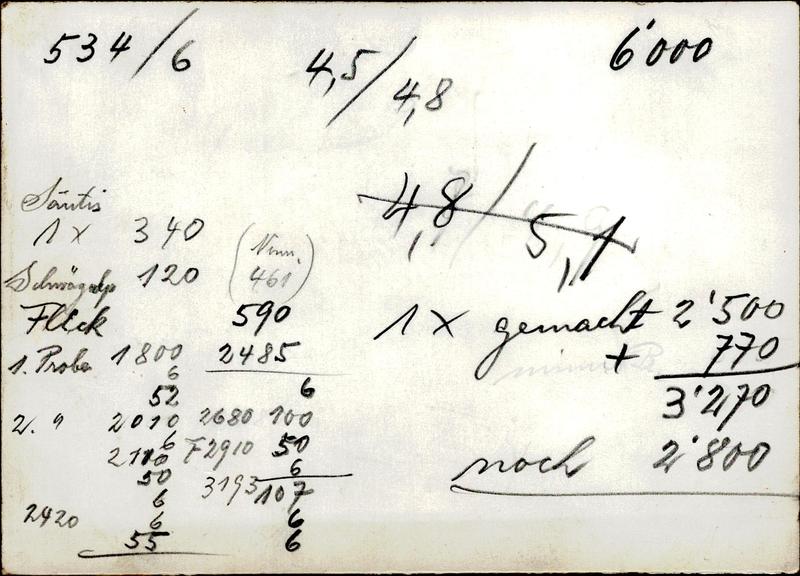 534/6
4,5/4,8
6'000
4,8/5,1
Säntis
1x 340
(Num. 461)
Schwägalp 120
Flick 590
1x gemacht 2'500
+ 770
3'270
noch 2'800
1. Probe 1800 2485
6
52 6
2. " 2010 2680 100
6
2110 F2910 50
50 6
3193 107
6 6
2420 6 6
55